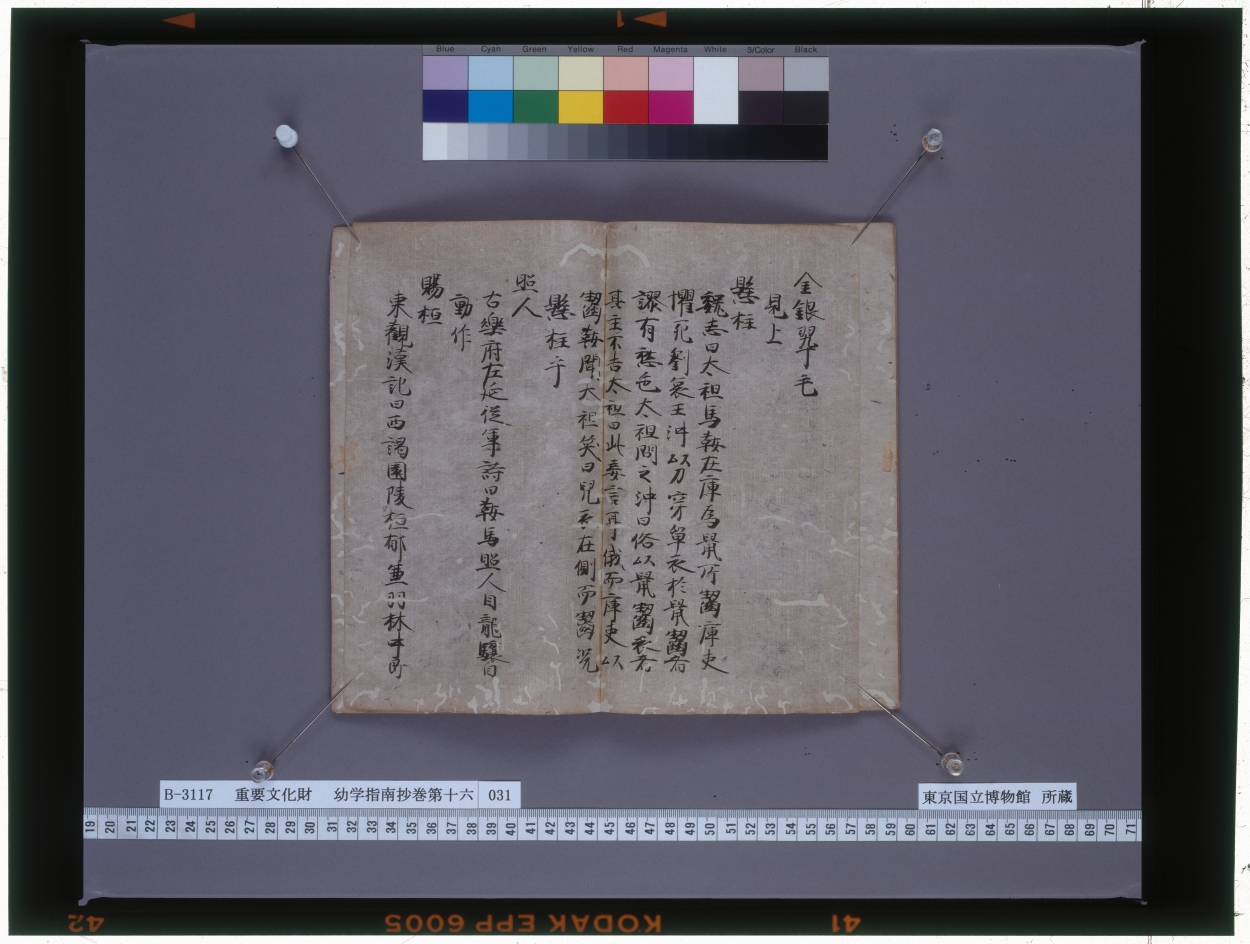 Blue Cyan Green Yellow Red Magenta White 3/Color Black
金銀翠毛
見上
懸柱
魏志曰太祖馬鞍在庫為鼠所齧庫吏
懼死劉裒王沖以刀穿單衣於鼠齧者
謬有愁色太祖問之沖曰俗以鼠齧衣者
其主不吉太祖曰此妄言耳俄而庫吏以
齧鞍聞太祖笑曰兒衣在側而齧況
懸柱乎
照人
古樂府左延従軍詩曰鞍馬照人目龍驤自
動作
賜桓
東觀漢記曰西謁園陵桓郁兼羽林中郎
B-3117 重要文化財 幼学指南抄巻第十六 031
東京国立博物館 所蔵
19 20 21 22 23 24 25 26 27 28 29 30 31 32 33 34 35 36 37 38 39 40 41 42 43 44 45 46 47 48 49 50 51 52 53 54 55 56 57 58 59 60 61 62 63 64 65 66 67 68 69 70 71
1
42 KODAK EPP 6005 41